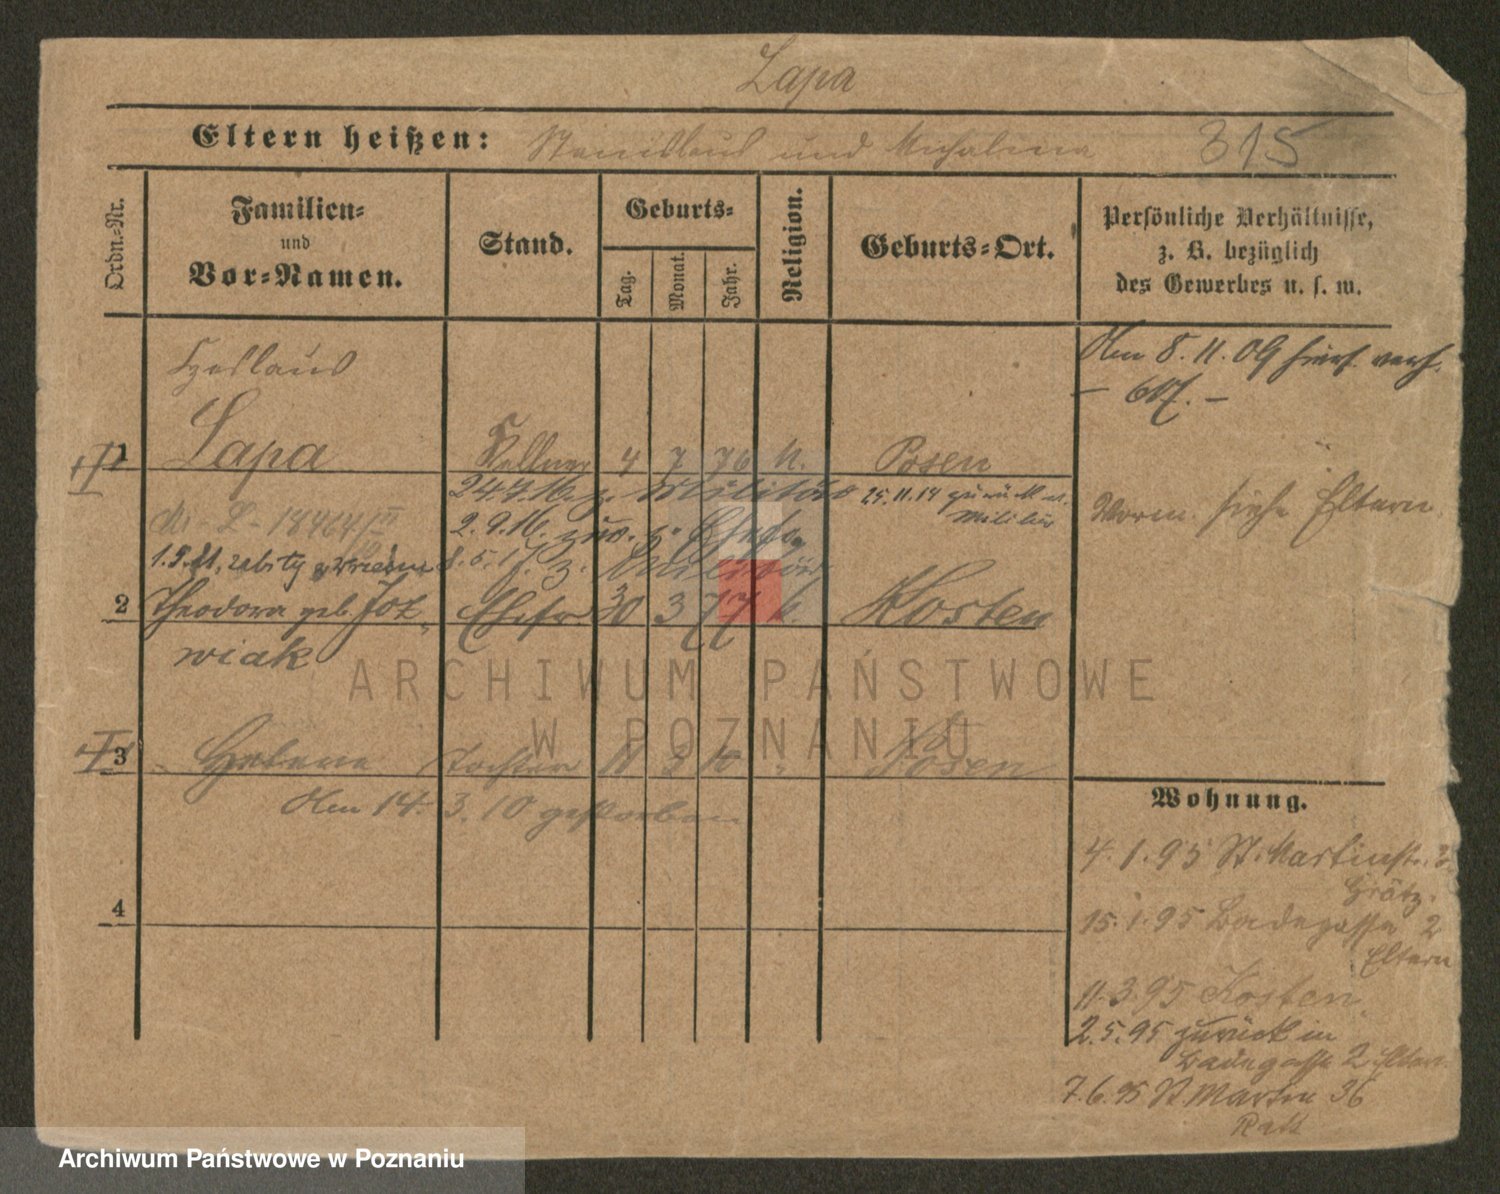 Lapa
Eltern heißen: Stanislaus und Michalina 315
Ordn.-Nr.
Familien-
und
Vor-Namen.
Stand.
Geburts-
Tag.
Monat.
Jahr.
Religion.
Geburts-Ort.
Persönliche Verhältnisse,
z. B. bezüglich
des Gewerbes u. s. w.
Am 8. 11. 09
Czeslaus
1 Lapa Kellner 4 7 76 k. Posen
24.7.16. z. Militär 25.11.14 zurück v.
Militär
2.9.16. zur. z. Ehefr.
Worm. siehe Eltern.
18464
zabity 8.5.17. z. Militär
2 Theodora geb. Joz- Ehefr. 30 3 77 k. Kosten
wiak
3 Helene Tochter 11 3 10 " Posen
Am 14. 3. 10 gestorben
4
Wohnung.
4. 1. 95 St. Martinstr.
Grätz.
15. 1. 95 Badegasse 2
Eltern
11. 3. 95 Kosten
2. 5. 95 zurück in
Badegasse 2 Eltern
7. 6. 95 St Martin 36
ARCHIWUM PAŃSTWOWE
W POZNANIU
Archiwum Państwowe w Poznaniu